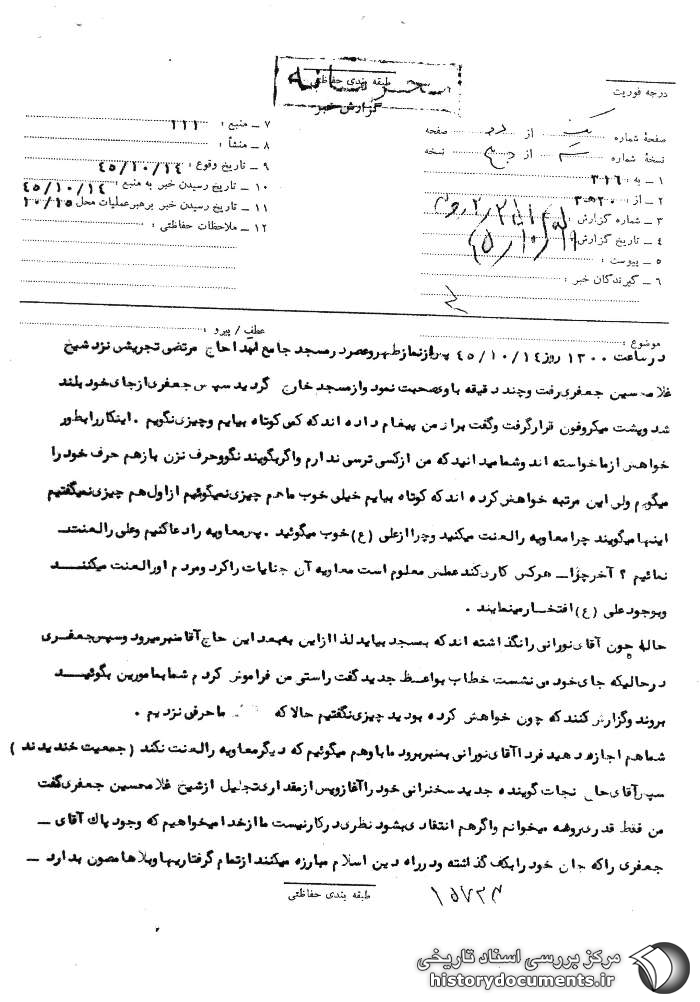 درجه فوریت
طبقه بندی حفاظتی
گزارش خبر
صفحهٔ شماره یک از دو صفحه
نسخهٔ شماره از نسخه
۱ ــ به : ۳۱۶
۲ ــ از : ۲۰ هـ ۳
۳ ــ شماره گزارش :
۴ ــ تاریخ گزارش :
۵ ــ پیوست :
۶ ــ گیرندگان خبر :
۷ ــ منبع : ۱۱۱
۸ ــ منشأ :
۹ ــ تاریخ وقوع : ۴۵/۱۰/۱۴
۱۰ ــ تاریخ رسیدن خبر به منبع : ۴۵/۱۰/۱۴
۱۱ ــ تاریخ رسیدن خبر برهبر عملیات محل ۱۰/۱۵
۱۲ ــ ملاحظات حفاظتی :
موضوع :
عطف / پیرو :
در ساعت ۱۳۰۰ روز ۴۵/۱۰/۱۴ پس از نماز ظهر و عصر در مسجد جامع حاج مرتضی تجریشی نزد شیخ
غلامحسین جعفری رفت و چند دقیقه با وی صحبت نمود و از مسجد خارج گردید سپس جعفری از جای خود بلند
شد و پشت میکروفون قرار گرفت و گفت برادر من پیغام داده اند که کمی کوتاه بیایم و چیزی نگویم . اینکار را بطور
خواهش از ما خواسته اند و شما میدانید که من از کسی ترسی ندارم و اگر بگویند نگو و حرف نزن باز هم حرف خود را
میگویم ولی این مرتبه خواهش کرده اند که کوتاه بیایم خیلی خوب ما هم چیزی نمیگوئیم از اول هم چیزی نمیگفتیم
اینها میگویند چرا معاویه را لعنت میکنید و چرا از علی (ع) خوب میگوئید . پس معاویه را دعا کنیم و علی را لعنت
نمائیم ؟ آخر چرا ــ هر کس کار کند عملش معلوم است معاویه آن جنایات را کرد و مردم او را لعنت میکننـــد
و بوجود علی (ع) افتخار مینمایند .
حالا چون آقای نورانی را نگذاشته اند که بمسجد بیاید لذا از این به بعد این حاج آقا منبر میرود و سپس جعفری
در حالیکه جای خود می نشست خطاب بواعظ جدید گفت راستی من فراموش کردم شما بمامورین بگوئیـــد
بروند و گزارش کنند که چون خواهش کرده بودید چیزی نگفتیم حالا که ما حرفی نزدیم .
شما هم اجازه دهید فردا آقای نورانی بمنبر برود ما باو هم میگوئیم که دیگر معاویه را لعنت نکند (جمعیت خندیدند )
سپس آقای حاج نجات گوینده جدید سخنرانی خود را آغاز و پس از مقداری تجلیل از شیخ غلامحسین جعفری گفت
من فقط قدری روضه میخوانم و اگر هم انتقادی بشود نظری در کار نیست ما از خدا میخواهیم که وجود پاک آقای ــ
جعفری را که جان خود را بکف گذاشته و در راه دین اسلام مبارزه میکنند از تمام گرفتاریها و بلاها مصون بدارد ــ
طبقه بندی حفاظتی
مرکز بررسی اسناد تاریخی
historydocuments.ir